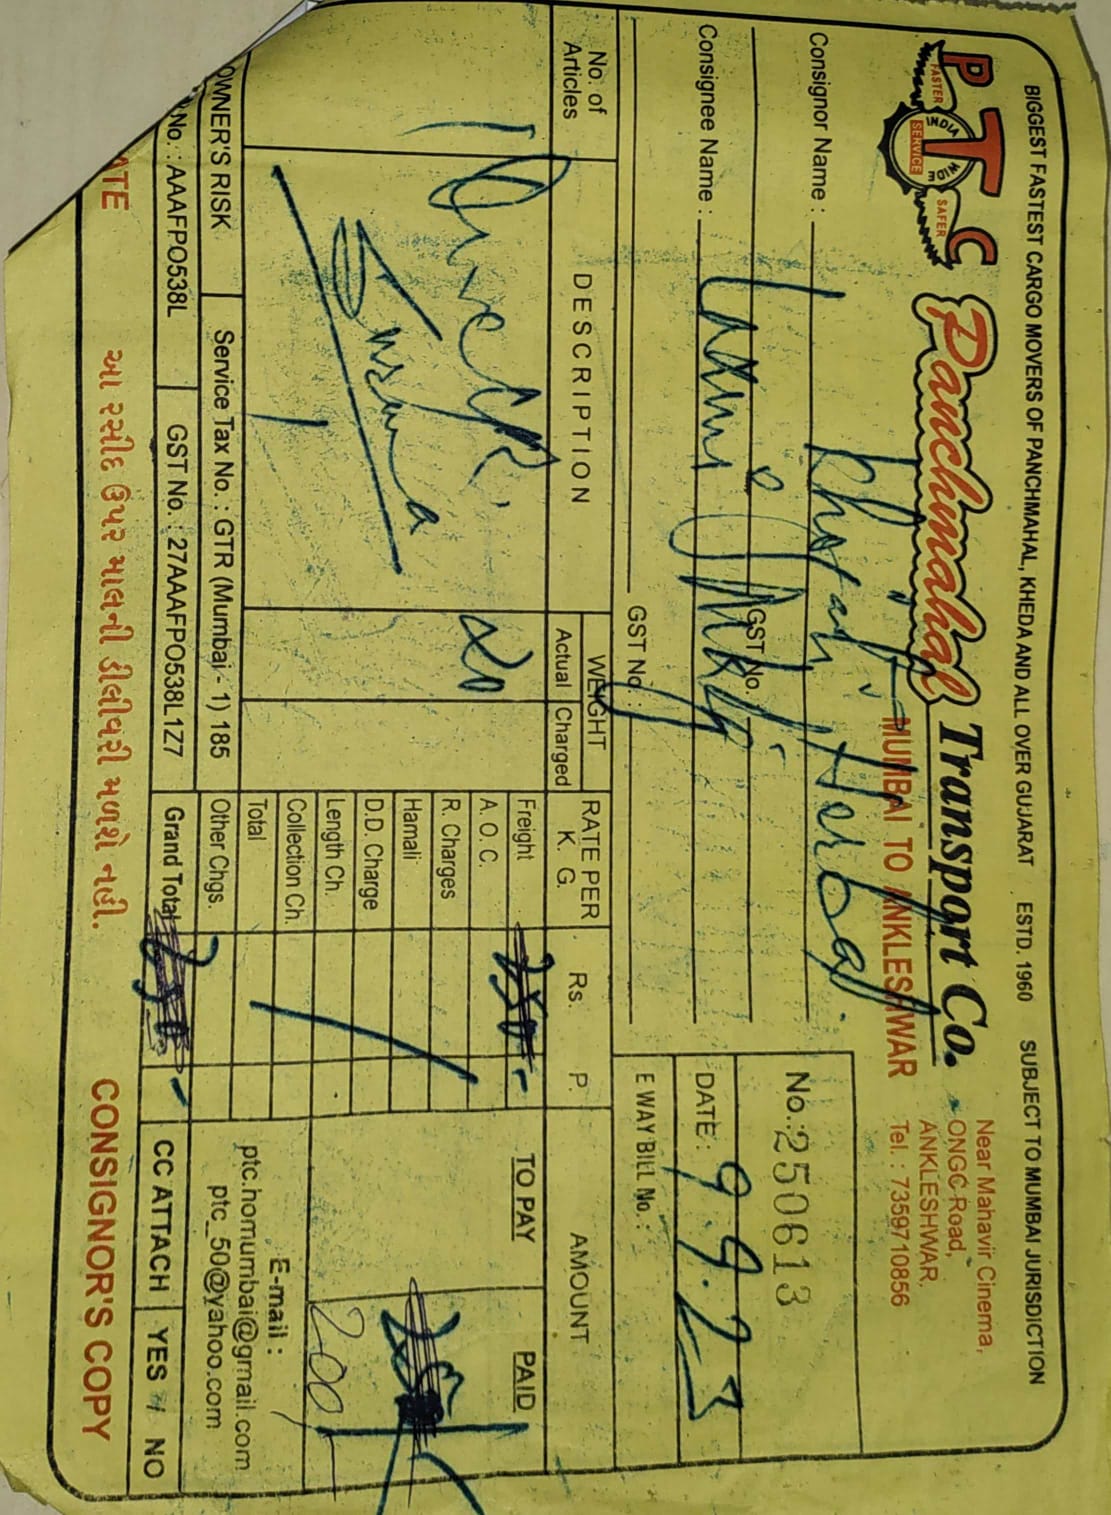 BIGGEST FASTEST CARGO MOVERS OF PANCHMAHAL, KHEDA AND ALL OVER GUJARAT ESTD. 1960 SUBJECT TO MUMBAI JURISDICTION
PTC
FASTER
INDIA WIDE
SERVICE
SAFER
Panchmahal Transport Co.
MUMBAI TO ANKLESHWAR
Near Mahavir Cinema,
ONGC Road,
ANKLESHWAR.
Tel. : 7359710856
Consignor Name :
GST No.
No.: 250613
Consignee Name :
GST No. :
DATE : 9.9.25
E WAY BILL No. :
No. of Articles
DESCRIPTION
WEIGHT
Actual Charged
RATE PER K. G.
Rs. P.
AMOUNT
TO PAY PAID
1
20
Freight
A. O. C.
R. Charges
Hamali
D.D. Charge
Length Ch.
Collection Ch.
Total
Other Chgs.
Grand Total
200
E-mail :
ptc.homumbai@gmail.com
ptc_50@yahoo.com
OWNER'S RISK
Service Tax No. : GTR (Mumbai - 1) 185
No. : AAAFPO538L
GST No. : 27AAAFPO538L1Z7
CC ATTACH YES NO
ATE
આ રસીદ ઉપર માલની ડીલીવરી મળશે નહી.
CONSIGNOR'S COPY